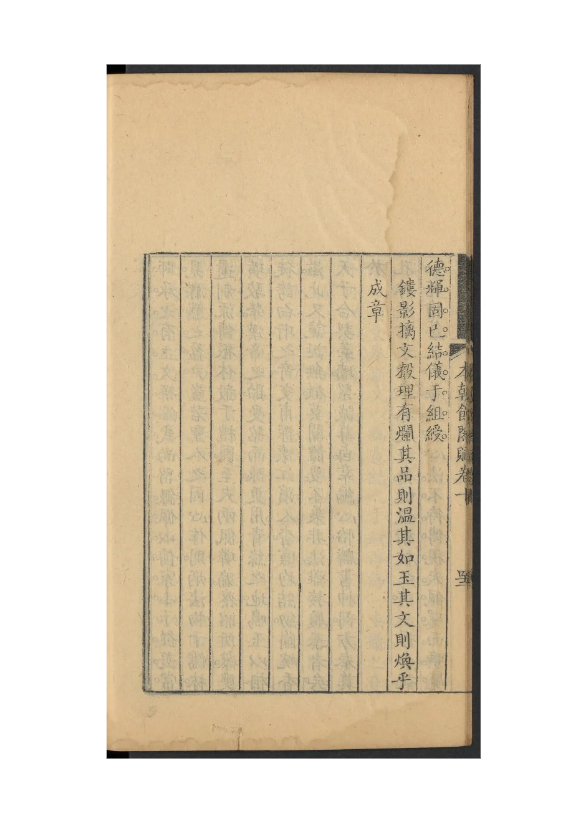 德輝固已結儀于組綬
鏤影摛文縠理有斕其品則溫其如玉其文則煥乎
成章
本朝館閣賦卷十